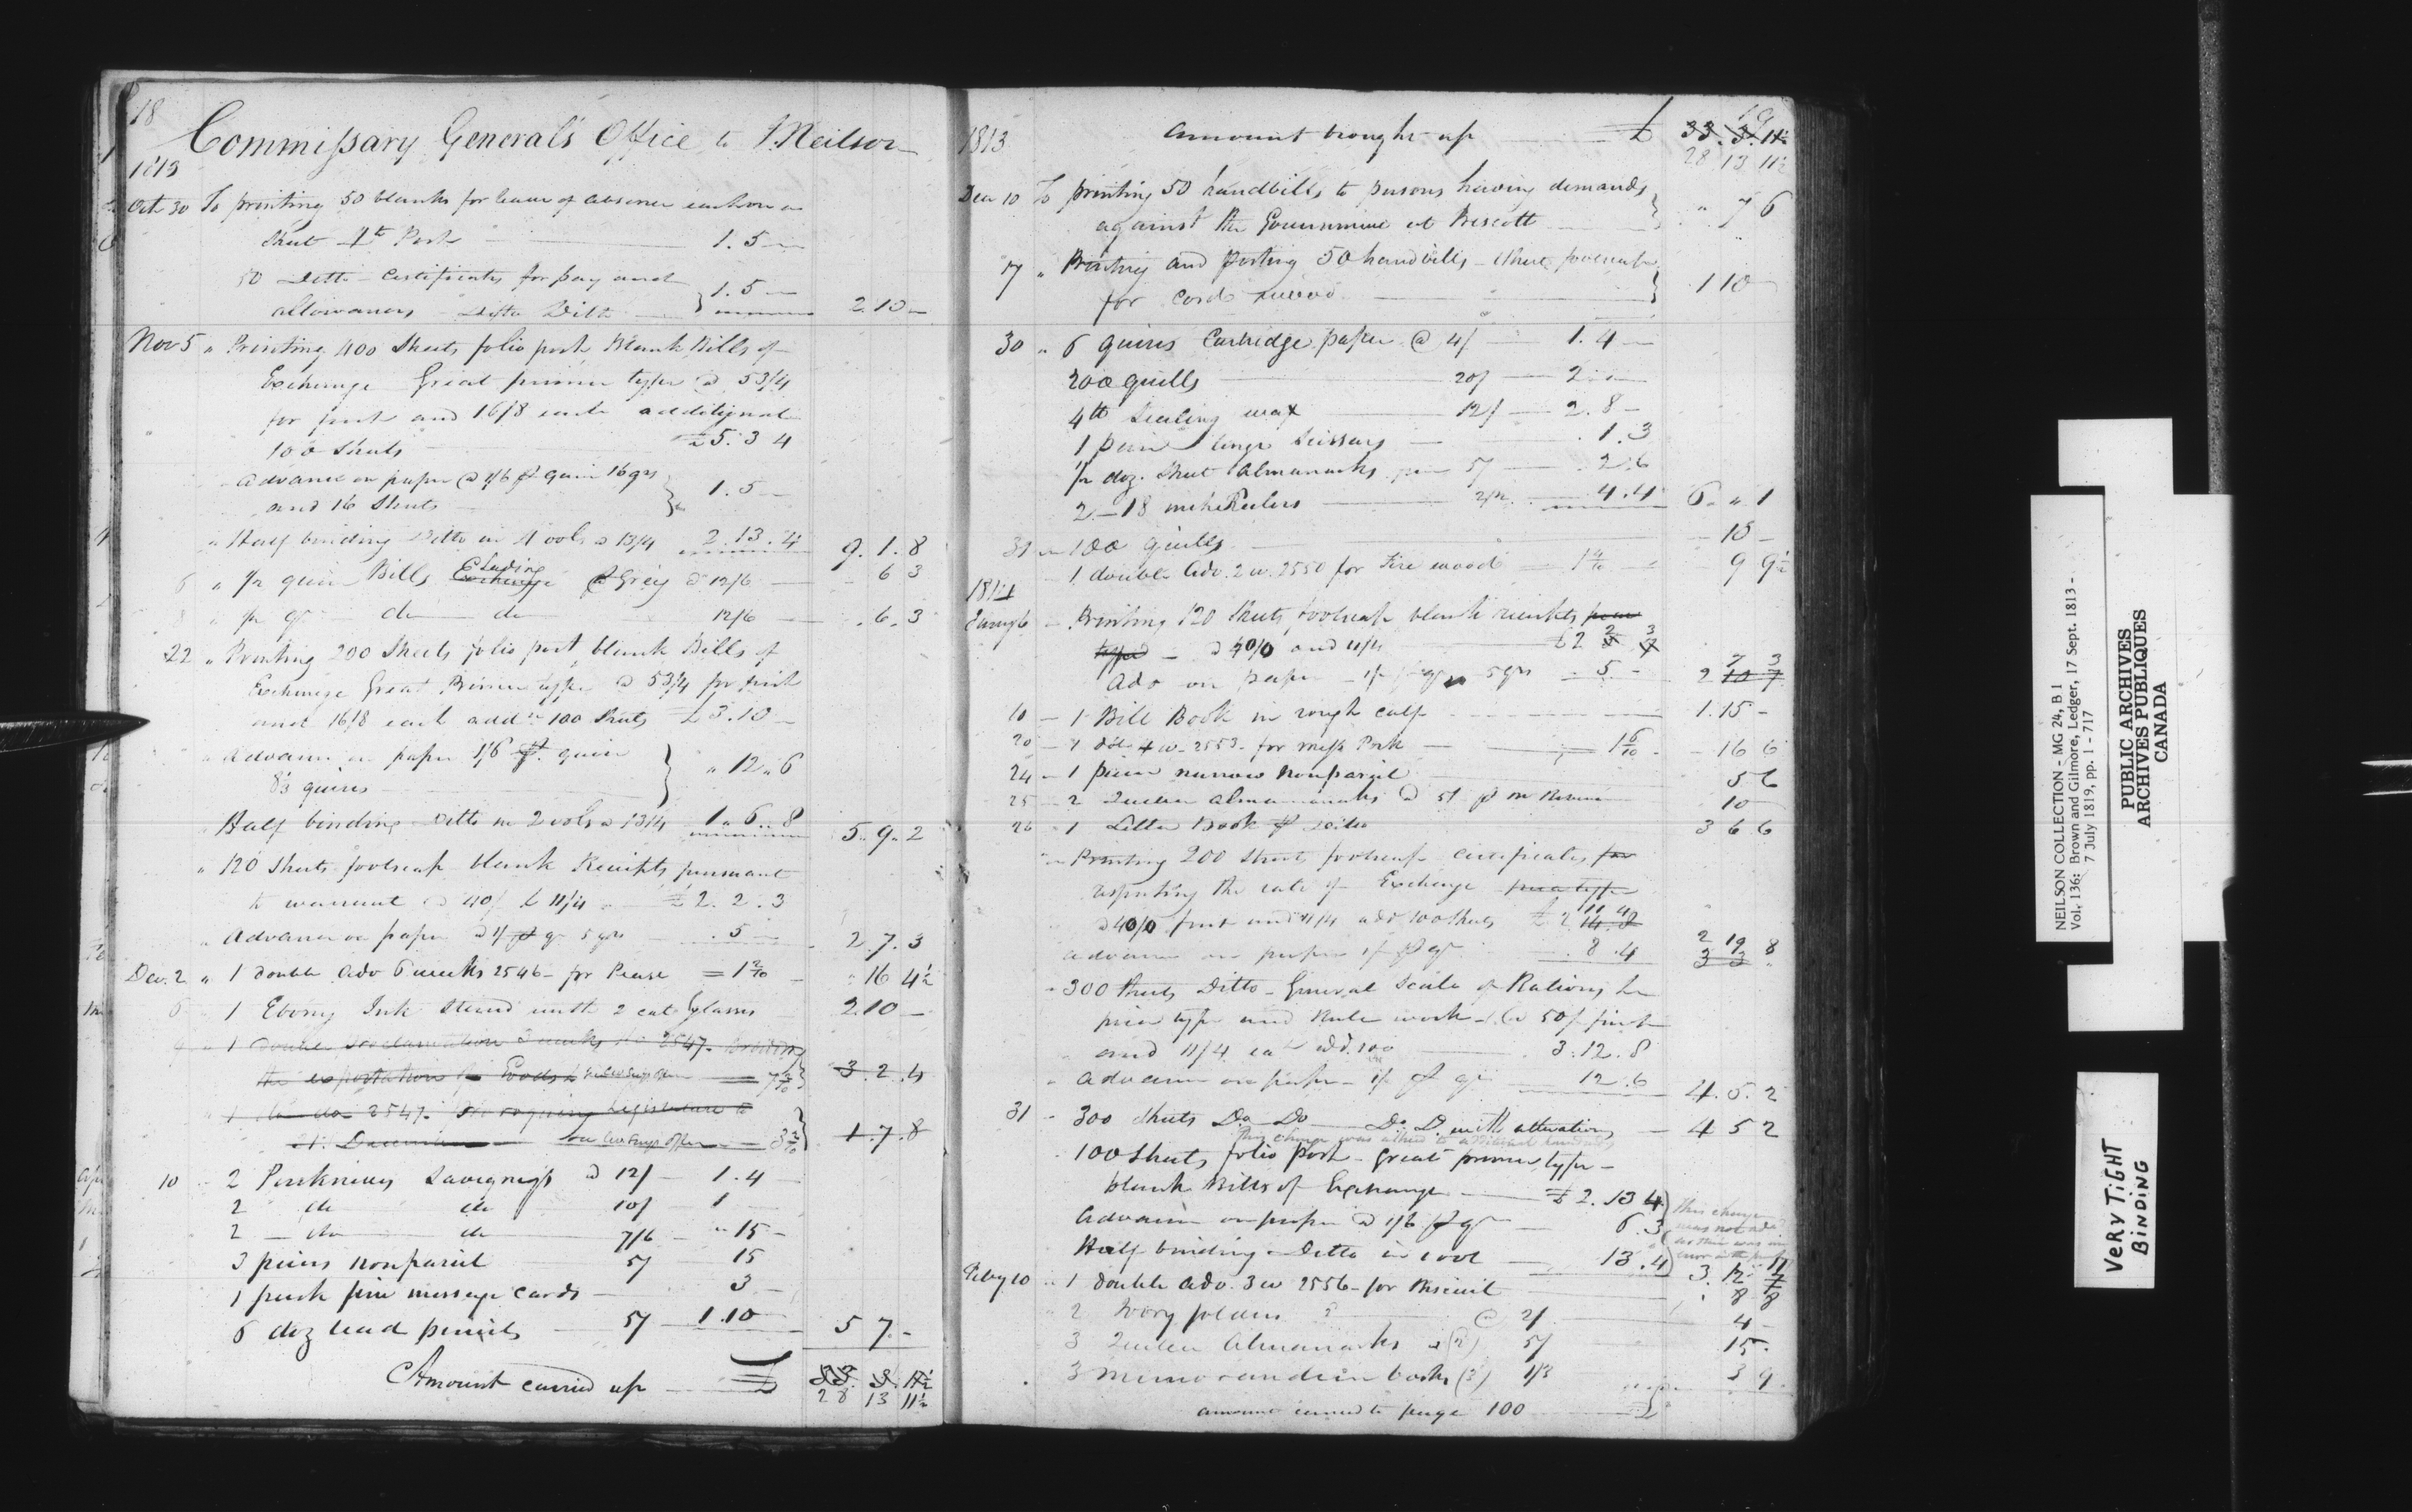 18
Commissary General's Office to J. Neilson
1813
Oct 30 To printing 50 blanks for leave of absence each on a
Sheet 4to Post 1. 5 —
50 Ditto - Certificates for pay and
allowances - Ditto Ditto 1. 5 — 2. 10 —
Nov 5 " Printing 400 Sheets folio post Blank Bills of
Exchange Great primer type @ 53/4
for first and 16/8 each additional
100 Sheets £5. 3 4
Advance on paper @ 1/6 p quire 16 qrs
and 16 Sheets 1. 5 —
" Half binding Ditto in 4 vols @ 13/4 2. 13. 4 9. 1. 8
6 " 1/2 quire Bills Exchange Lading @ 12/6 — 6 3
8 " 1/2 qr do do 12/6 — . 6. 3
22 " Printing 200 Sheets folio post blank Bills of
Exchange Great Primer type @ 53/4 for first
and 16/8 each addl 100 Sheets £3. 10 —
" Advance on paper 1/6 p. quire
8 1/3 quires " 12 " 6
Half binding Ditto in 2 vols @ 13/4 1 " 6 .. 8 5. 9. 2
" 120 Sheets foolscap blank Receipts pursuant
to warrant @ 40/ & 11/4 £2. 2. 3
" Advance on paper @ 1/ p qr 5 qrs . 5 — 2. 7. 3
Dec. 2 " 1 double Adv 6 weeks 2546 - for Pease = 1 2/10 — " 16 4 1/2
6 1 Ebony Ink Stand with 2 cut Glasses 2 10 —
1 double Proclamation 3 weeks 2547.
the exportation of Goods 3. 2. 4
1 do do 2547. Legislature to
1. 7. 8
10 - 2 Penknives Savignys @ 12/ — 1. 4 —
2 do do 10/ — 1 —
2 — do do 7/6 — " 15 —
3 pieces nonpareil 5/ 15
1 pack fine message cards — 3 —
6 doz lead pencils — 5/ — 1. 10 5 7. -
Amount carried up £ 33. 3. 11 1/2
28 13 11 1/2
19
1813 Amount brought up £ 33. 3. 11 1/2
28 13 11 1/2
Dec 10 To printing 50 handbills to persons having demands
against the Government at Prescott " 7 6
17 " Printing and Posting 50 handbills - Sheet foolscap
for Cord wood 1 10
30 " 6 quires Cartridge paper @ 4/ — 1. 4 —
200 Quills 20/ — 2. " —
4 lb Sealing wax 12/ — 2. 8 —
1 pair large Scissars . 1. 3
1/2 doz. Sheet Almanacks 5/ — . 2. 6
2 — 18 inch Rulers 2/2 . 4. 4 6. " 1
31 — 100 Quills — 10 —
1 double Adv. 2 w. 2550 for Fire wood 1 4/10 — 9 9 1/2
1814
Jany 6 — Printing 120 Sheets foolscap blank receipts
type — @ 40/0 and 11/4 £2 2 3
Adv on paper — 1/ p qr 5 qrs . 5. — 2 7 3
10 — 1 Bill Book in rough calf 1. 15 —
20 — 1 do 4 w. 2553 - for mess Pork 1 6/10 — 16 6
24 — 1 piece narrow nonpareil 5 6
25 — 2 Quebec Almanacks @ 5/ 10
26 1 Letter Book 3 6 6
Printing 200 Sheets foolscap Certificates for
respecting the rate of Exchange pica type
@ 40/0 first and 11/4 add 100 Sheets £2 11 4
advance on paper 1/ p qr . 8. 4 2 19 8
" 300 Sheets Ditto - General Scale of Rations
pica type and Rule work @ 50/ first
and 11/4 each add. 100 3. 12. 8
" Advance on paper - 1/ p qr 12. 6 4. 5. 2
31 — 300 Sheets Do Do Do Do with alterations — 4 5 2
100 Sheets folio Post - Great primer type -
blank Bills of Exchange £ 2. 13 4
Advance on paper @ 1/6 p qr 6. 3
Half binding Ditto in 1 vol 13. 4 3. 12 11
This charge
was not
Feby 10 " 1 double Adv. 3 w 2556 - for Biscuit 8 8
" 2 Ivory folders @ 2/ 4 —
3 Quebec Almanacks 5/ 15 -
3 memorandum books 1/3 3 9
amount carried to page 100 £
NEILSON COLLECTION - MG 24, B 1
Vol. 136: Brown and Gilmore, Ledger, 17 Sept. 1813 -
7 July 1819, pp. 1 - 717
PUBLIC ARCHIVES
ARCHIVES PUBLIQUES
CANADA
VERY TIGHT
BINDING